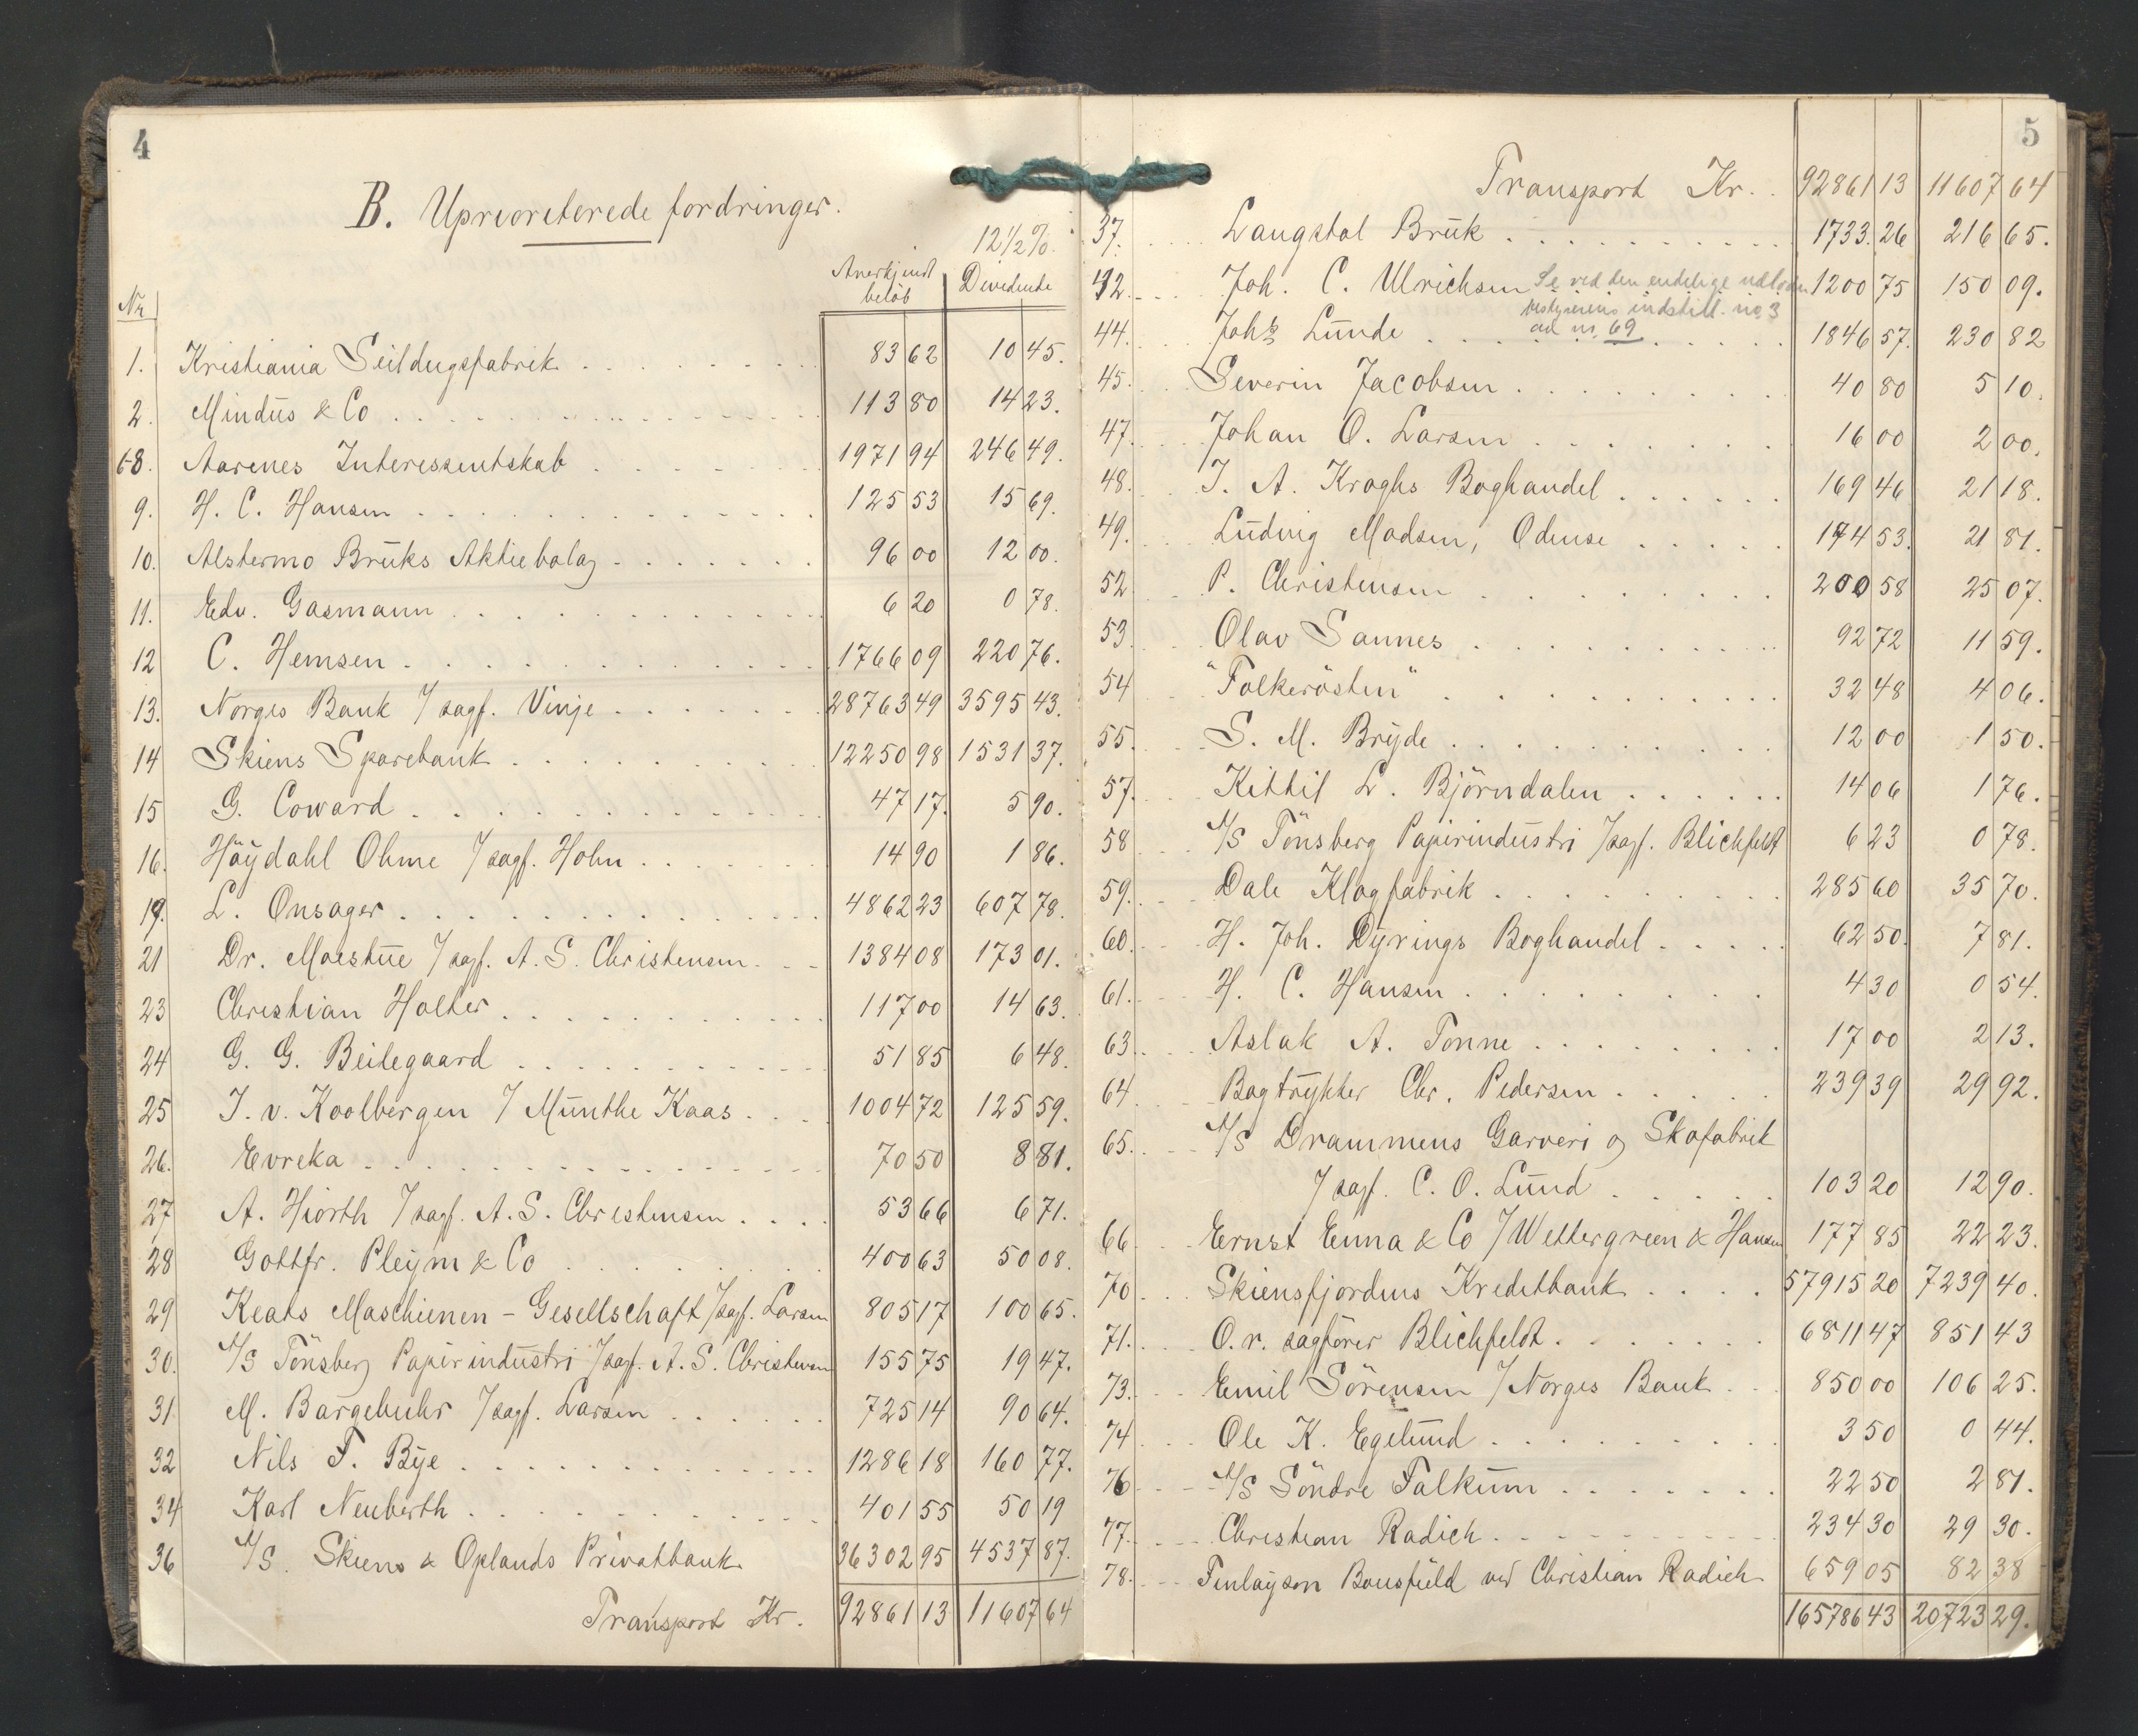 4
B. Uprioriterede fordringer.
Nr Anerkjendt beløb 12½% Dividende
1. Kristiania Seildugsfabrik 83 62 10 45.
2. Mindüs & Co 113 80 14 23.
68. Aarenes Interessentskab 1971 94 246 49.
9. H. C. Hansen 125 53 15 69.
10. Alstermo Brüks Aktiebolag 96 00 12 00.
11. Edv. Gasmann 6 20 0 78.
12 C. Hemsen 1766 09 220 76.
13. Norges Bank / sagf. Vinje 28763 49 3595 43.
14 Skiens Sparebank 12250 98 1531 37.
15 G. Coward 47 17. 5 90.
16. Höÿdahl Ohme / sagf. Holm 14 90 1 86.
19. L. Onsager 4862 23 607 78.
21 Dr. Moestüe / sagf. A. S. Christensen 1384 08 173 01.
23 Christian Holter 117 00 14 63.
24 G. G. Beitegaard 51 85 6 48.
25 J. v. Koolbergen / Münthe Kaas 1004 72 125 59.
26. Evreka 70 50 8 81.
27 A. Hiorth / sagf. A. S. Christensen 53 66 6 71.
28 Gottfr. Pleÿm & Co 400 63 50 08.
29 Keats Maschienen - Gesellschaft / sagf. Larsen 805 17 100 65.
30. A/S Tönsberg Papirindüstri / sagf. A. S. Christensen 155 75 19 47.
31 M. Bargebuhr / sagf. Larsen 725 14 90 64.
32 Nils F. Bÿe 1286 18 160 77.
34 Karl Neuberth 401 55 50 19
36 A/S. Skiens & Oplands Privatbank 36302 95 4537 87.
Transport Kr. 92861 13 11607 64
5
Transport Kr. 92861 13 11607 64
37. Langstol Brük 1733. 26 216 65.
42. Joh. C. Ulrichsen 1200 75 150 09.
Se ved den endelige
bestyrerens indstill. no. 3
ad nr. 69
44. Johs Lünde 1846 57. 230 82
45. Severin Jacobsen 40 80 5 10.
47. Johan O. Larsen 16 00 2 00.
48. J. A. Kroghs Boghandel 169 46 21 18.
49. Lüdvig Madsen, Odense 174 53. 21 81.
52 P. Christensen 200 58 25 07.
53 Olav Sannes 92 72 11 59.
54 "Folkerösten" 32 48 4 06.
55. S. M. Brÿde 12 00 1 50.
57. Kittil L. Björndalen 14 06 1 76.
58 A/S Tönsberg Papirindüstri / sagf. Blichfeldt 6 23 0 78.
59. Dale Klogfabrik 285 60 35 70.
60. H. Joh. Dÿrings Boghandel 62 50. 7 81.
61. H. C. Hansen 4 30 0 54.
63. Aslak A. Tonne 17 00 2 13.
64 Bogtrÿkker Chr. Pedersen 239 39 29 92.
65. A/S Drammens Garveri og Skofabrik
/ sagf. C. O. Lünd 103 20 12 90.
66. Ernst Enna & Co / Wettergreen & Hansen 177 85 22 23.
70 Skiensfjordens Kreditbank 57915 20 7239 40.
71. O. r. sagförer Blichfeldt 6811 47 851 43
73. Emil Sörensen / Norges Bank 850 00 106 25.
74 Ole K. Egelünd 3 50 0 44.
76 A/S Söndre Falküm 22 50 2 81.
77. Christian Radich 234 30 29 30.
78. Finlaÿson Bousfield ved Christian Radich 659 05 82 38
165786 43 20723 29.